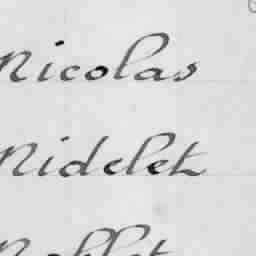 Nicolas
Nidelet